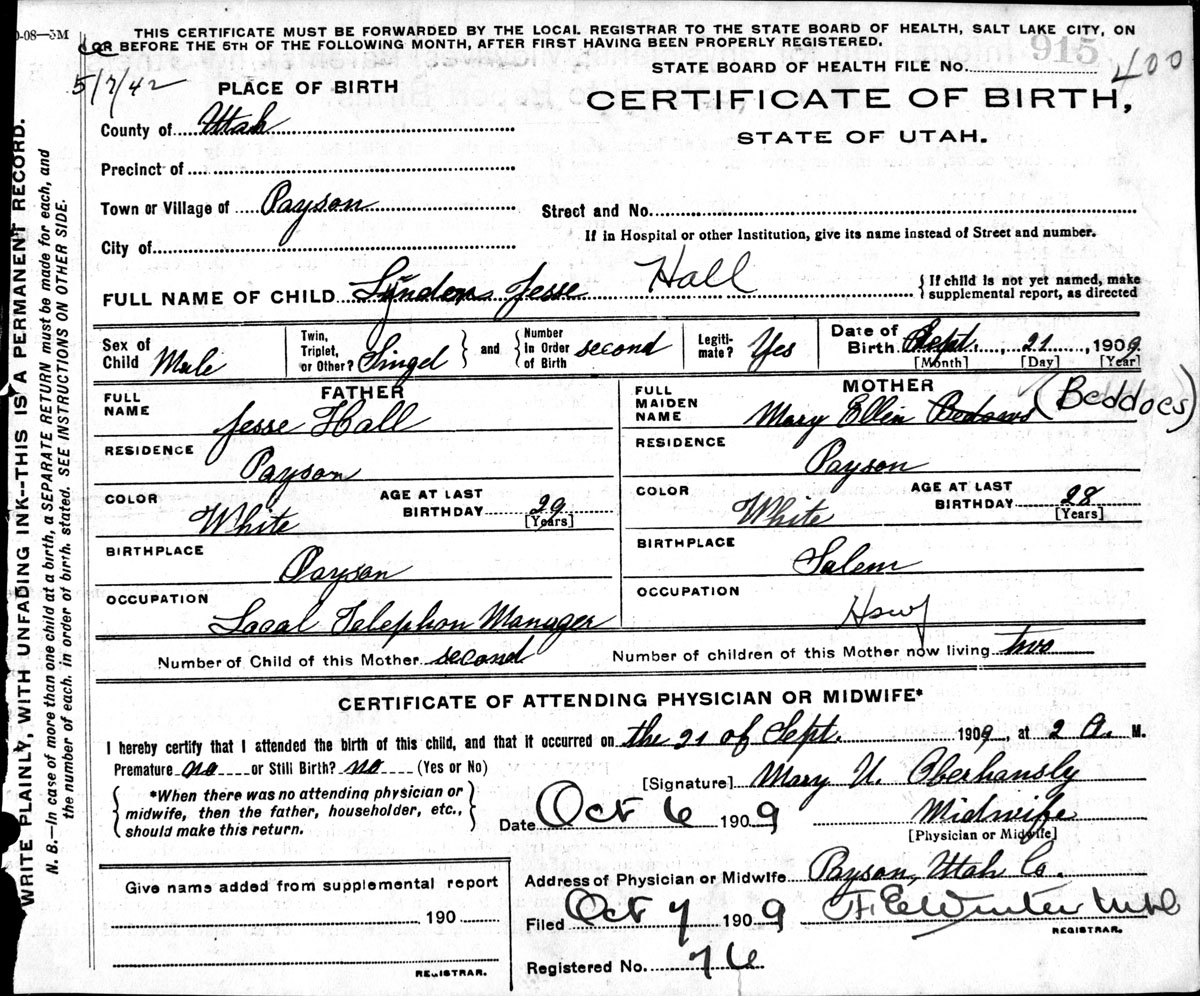 0-08—5M
THIS CERTIFICATE MUST BE FORWARDED BY THE LOCAL REGISTRAR TO THE STATE BOARD OF HEALTH, SALT LAKE CITY, ON
OR BEFORE THE 5TH OF THE FOLLOWING MONTH, AFTER FIRST HAVING BEEN PROPERLY REGISTERED.
915
400
5/7/42
STATE BOARD OF HEALTH FILE No.
PLACE OF BIRTH
CERTIFICATE OF BIRTH,
STATE OF UTAH.
County of Utah
Precinct of
Town or Village of Payson
Street and No.
City of
If in Hospital or other Institution, give its name instead of Street and number.
FULL NAME OF CHILD Lynden Jesse Hall
{ If child is not yet named, make
supplemental report, as directed
Sex of Child Male
Twin, Triplet, or Other? Singel } and { Number In Order of Birth second
Legiti-mate? Yes
Date of Birth Sept. 21, 1909
[Month] [Day] [Year]
FATHER
FULL NAME Jesse Hall
RESIDENCE Payson
COLOR White
AGE AT LAST BIRTHDAY 29 [Years]
BIRTHPLACE Payson
OCCUPATION Local Telephon Manager
MOTHER
FULL MAIDEN NAME Mary Ellen Bedows (Beddoes)
RESIDENCE Payson
COLOR White
AGE AT LAST BIRTHDAY 28 [Years]
BIRTHPLACE Salem
OCCUPATION Hswf
Number of Child of this Mother second
Number of children of this Mother now living two
CERTIFICATE OF ATTENDING PHYSICIAN OR MIDWIFE*
I hereby certify that I attended the birth of this child, and that it occurred on the 21 of Sept. 1909, at 2 A. M.
Premature no or Still Birth? no (Yes or No)
[Signature] Mary U. Oberhansly
{ *When there was no attending physician or
midwife, then the father, householder, etc.,
should make this return. }
Date Oct 6 1909
Midwife
[Physician or Midwife]
Give name added from supplemental report
190
REGISTRAR.
Address of Physician or Midwife Payson, Utah Co.
Filed Oct 7 1909
F E Winter
REGISTRAR.
Registered No. 76
WRITE PLAINLY, WITH UNFADING INK--THIS IS A PERMANENT RECORD.
N. B.—In case of more than one child at a birth, a SEPARATE RETURN must be made for each, and
the number of each. in order of birth. stated. SEE INSTRUCTIONS ON OTHER SIDE.